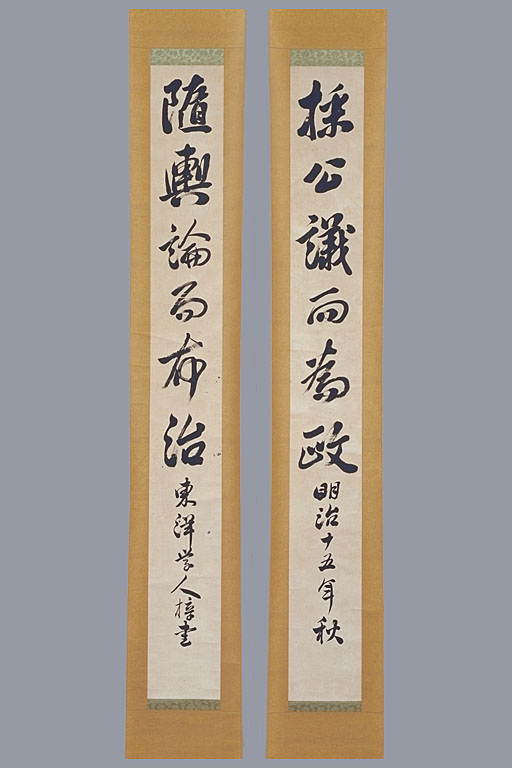 採公議而為政
明治十五年秋
隨輿論而布治
東洋学人梓書